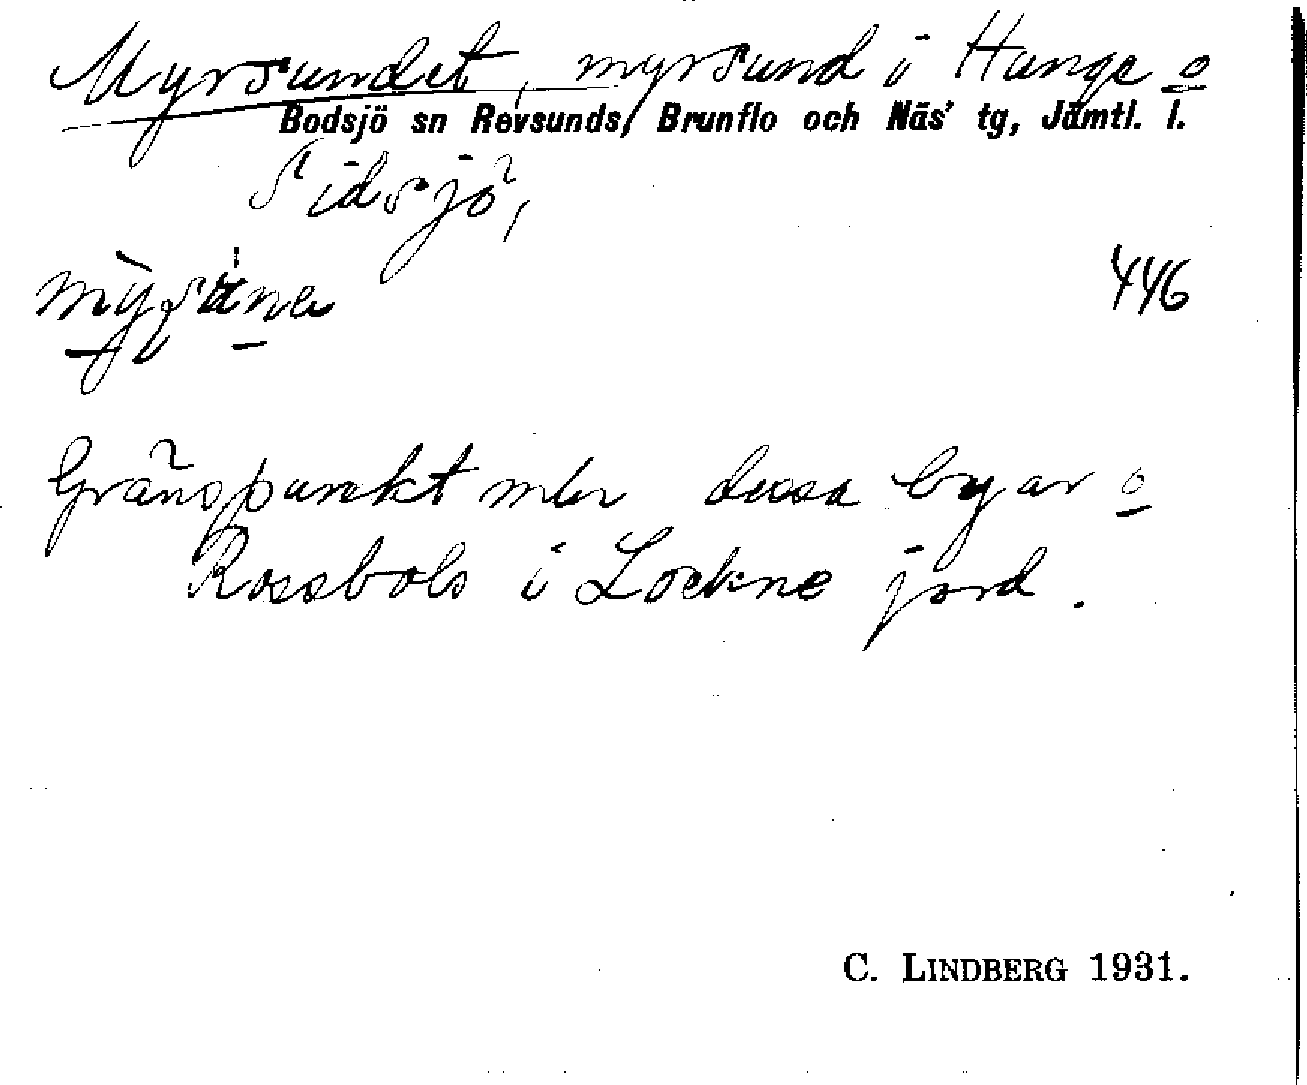 Myrsundet, myrsund i Hunge o
Bodsjö sn Revsunds, Brunflo och Näs' tg, Jämtl. l.
Sidsjö,
446
Gränspunkt mlr dessa byar o
Rossbols i Lockne jord.
C. LINDBERG 1931.